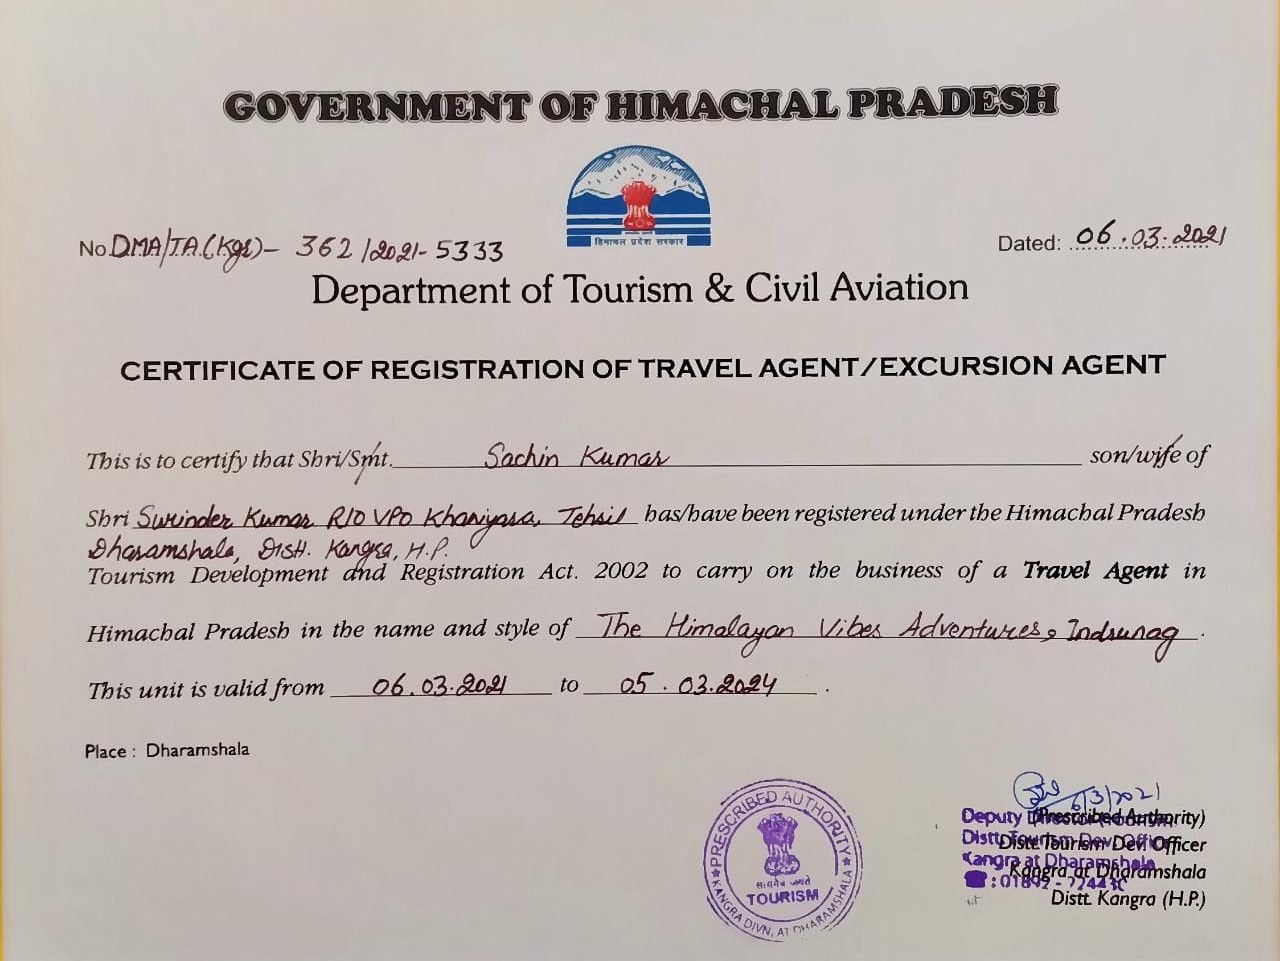 GOVERNMENT OF HIMACHAL PRADESH
हिमाचल प्रदेश सरकार
No. DMA/TA.(Kgr)- 362/2021-5333
Dated: 06.03.2021
Department of Tourism & Civil Aviation
CERTIFICATE OF REGISTRATION OF TRAVEL AGENT/EXCURSION AGENT
This is to certify that Shri/Smt. Sachin Kumar son/wife of
Shri Surinder Kumar R/O VPO Khaniyara, Tehsil has/have been registered under the Himachal Pradesh
Dharamshala, Distt. Kangra, H.P.
Tourism Development and Registration Act. 2002 to carry on the business of a Travel Agent in
Himachal Pradesh in the name and style of The Himalayan Vibes Adventures, Indrunag.
This unit is valid from 06.03.2021 to 05.03.2024.
Place : Dharamshala
PRESCRIBED AUTHORITY
सत्यमेव जयते
TOURISM
KANGRA DIVN. AT DHARAMSHALA
6/3/2021
(Prescribed Authority)
Distt. Tourism Dev. Officer
Kangra at Dharamshala
Distt. Kangra (H.P.)
Deputy Director Tourism
Distt. Tourism Dev. Officer
Kangra at Dharamshala